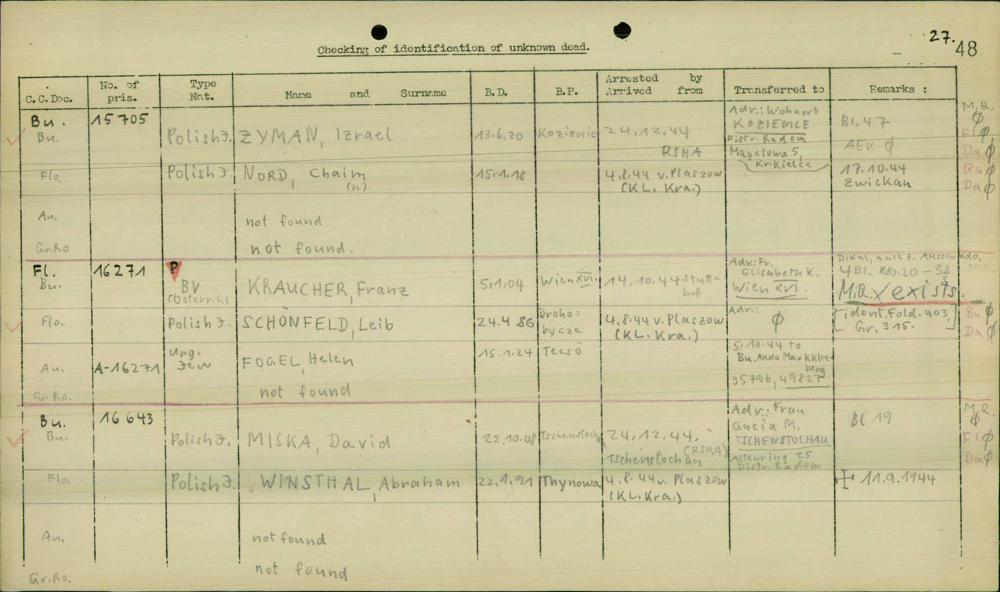 27. 48
Checking of identification of unknown dead.
C.C.Doc. No. of pris. Type Nat. Name and Surname B.D. B.P. Arrested by Arrived from Transferred to Remarks :
Bu. 15705
Bu. Polish J. ZYMAN, Izrael 13.6.20 Kozienic 24.12.44 RSHA
Adr.: Wohnort
KOZIENICE
Distr. Radom
Magetowa 5,
Kr. Kielce
Bl. 47
AEK ∅
M.Q. ∅
Fl ∅
Da ∅
Flo. Polish J. NORD, Chaim (n) 15.1.18 4.8.44 v. Plaszow (KL. Kra.) 17.10.44 Zwickau
Bu ∅
Da ∅
Au. not found
Gr.Ro not found.
Fl. 16271 P
Bu. BV (Österr.) KRAUCHER, Franz 5.1.04 Wien XVI. 14.10.44 Stutthof
Adr: Fr.
Elisabeth K.
Wien XVI.
4 Bl.
M.Q. exists.
Flo. Polish J. SCHÖNFELD, Leib 24.4.86 Drohobycze 4.8.44 v. Plaszow (KL. Kra.) Adr.: ∅
[ident. Fold. 403, Gr. 315.]
Bu ∅
Da ∅
Au. A-16271 Ung. Jew FOGEL, Helen 15.1.24 Tecsö
5.10.44 to
Bu. Ando Markkleeberg
35796, 49827
Gr.Ro. not found
Bu. 16643
Bu. Polish J. MISKA, David 22.10.08 Tschenstoch. 24.12.44. (RSHA) Tschenstochau
Adr.: Frau
Gucia M.
TSCHENSTOCHAU
25
Distr. Radom
Bl 19
M.Q. ∅
Fl ∅
Da ∅
Flo. Polish J. WINSTHAL, Abraham 22.1.91 Thynowa 4.8.44 v. Plaszow (KL. Kra.) ✝ 11.9.1944
Au. not found
Gr.Ro. not found